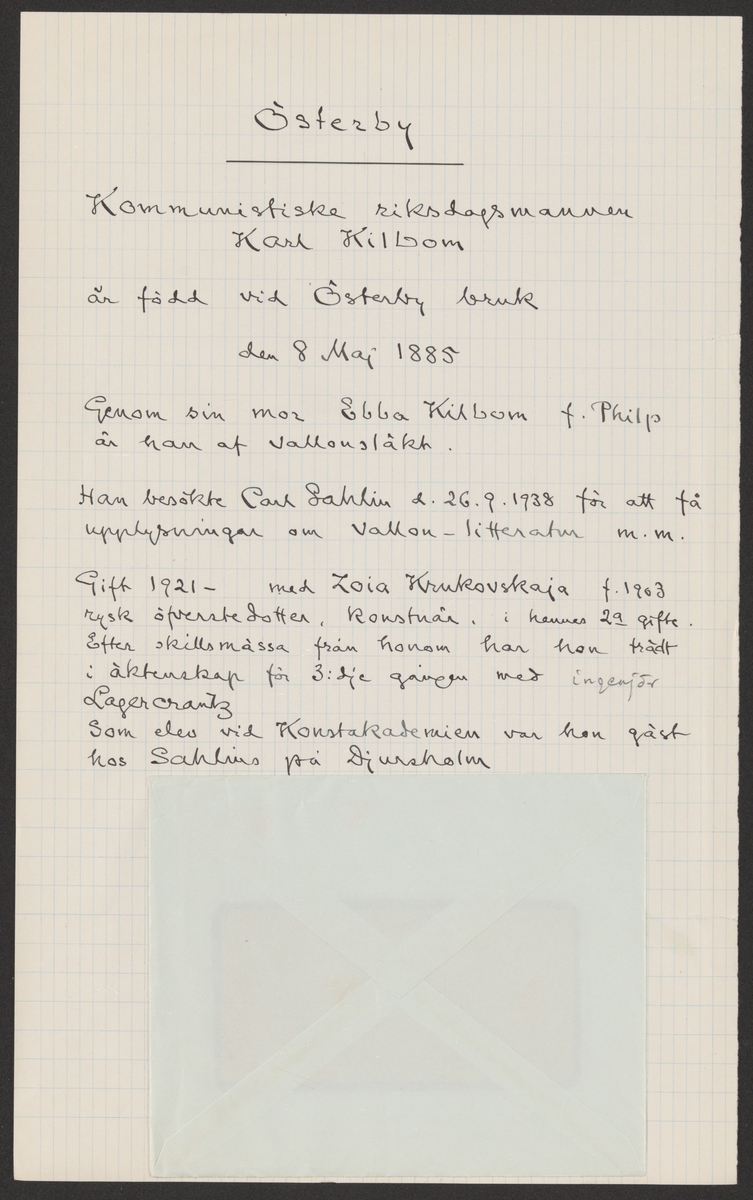 Österby
Kommunistiske riksdagsmannen
Karl Kilbom
är född vid Österby bruk
den 8 Maj 1885
Genom sin mor Ebba Kilbom f. Philp
är han af vallonsläkt.
Han besökte Carl Sahlin d. 26.9.1938 för att få
upplysningar om Vallon-litteratur m.m.
Gift 1921- med Zoia Krukovskaja f. 1903
rysk öfverstedotter, konstnär, i hennes 2a gifte.
Efter skillsmässa från honom har hon trädt
i äktenskap för 3:dje gången med ingenjör
Lagercrantz
Som elev vid Konstakademien var hon gäst
hos Sahlins på Djursholm